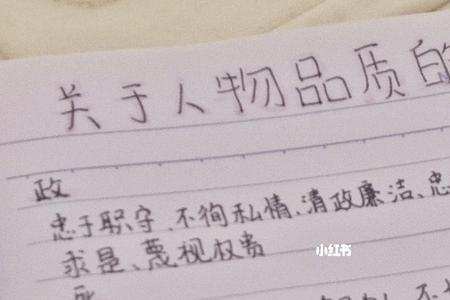 关于人物品质的
政
忠于职守、不徇私情、清政廉洁、忠
求是、蔑视权贵
小红书